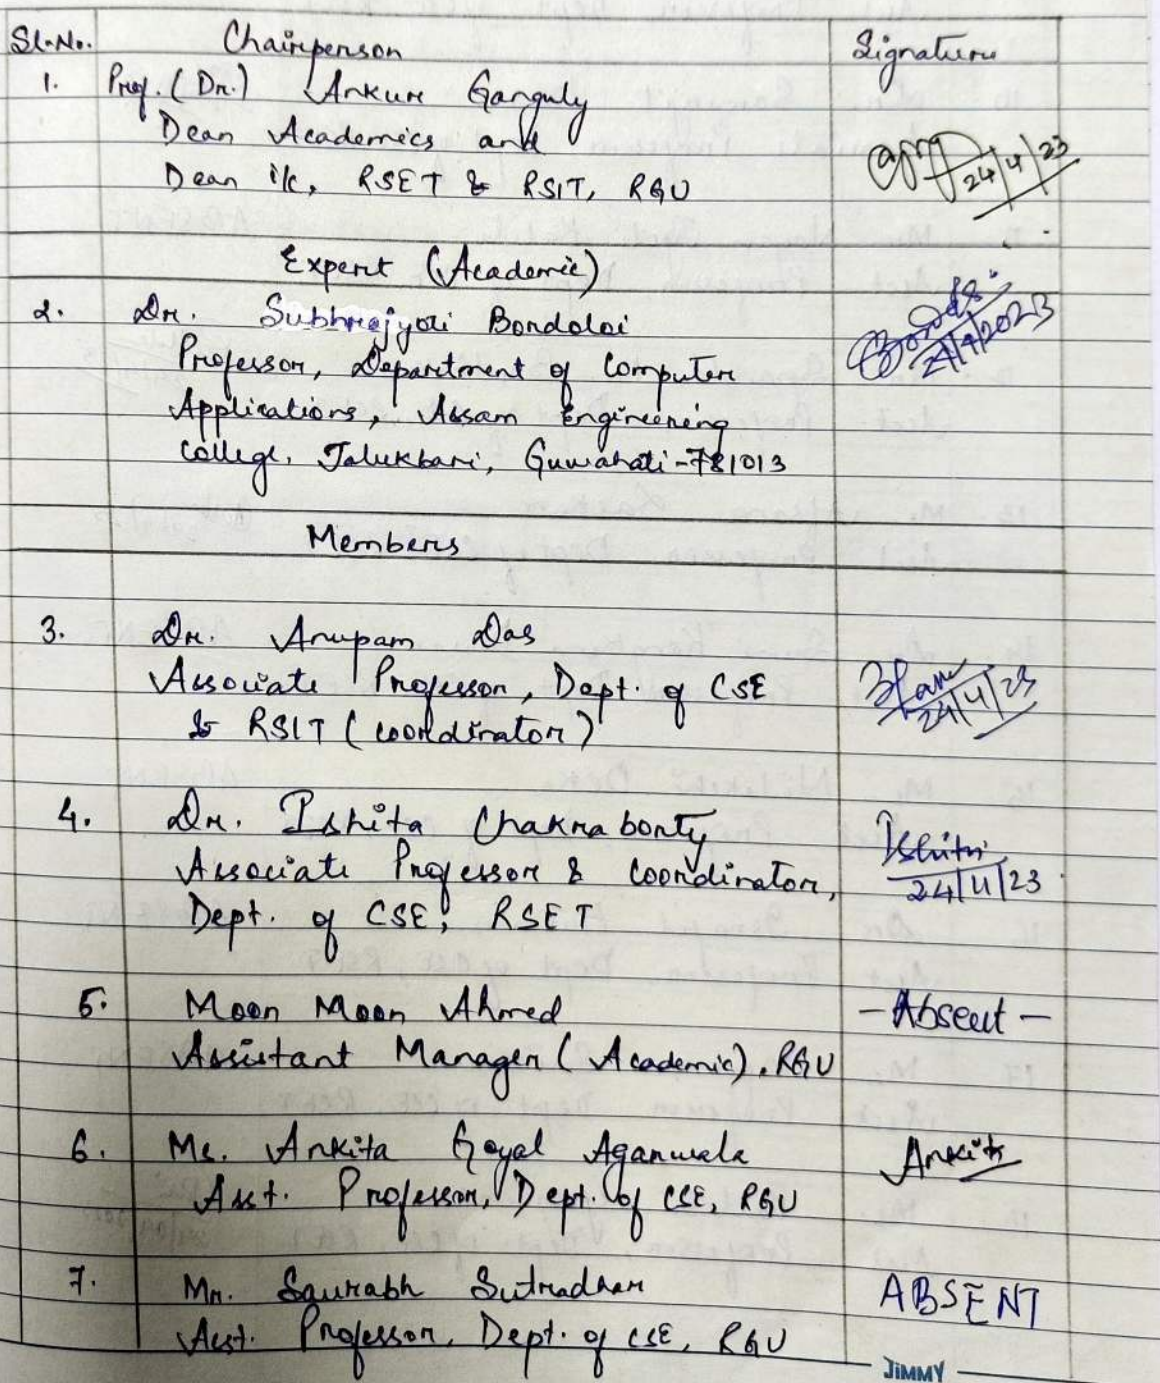 Sl.No. Chairperson Signature
1. Prof. (Dr.) Ankur Ganguly
Dean Academics and
Dean i/c, RSET & RSIT, RGU
24/4/23
Expert (Academic)
2. Dr. Subhrajyoti Bordoloi
24/4/2023
Professor, Department of Computer
Applications, Assam Engineering
College, Jalukbari, Guwahati-781013
Members
3. Dr. Anupam Das
Associate Professor, Dept. of CSE
& RSIT (Coordinator)
24/4/23
4. Dr. Ishita Chakraborty
Associate Professor & Coordinator,
24/4/23
Dept. of CSE, RSET
5. Moon Moon Ahmed - Absent -
Assistant Manager (Academic), RGU
6. Ms. Ankita Goyal Agarwala Ankita
Asst. Professor, Dept. of CSE, RGU
7. Mr. Saurabh Sutradhar ABSENT
Asst. Professor, Dept. of CSE, RGU
JiMMY